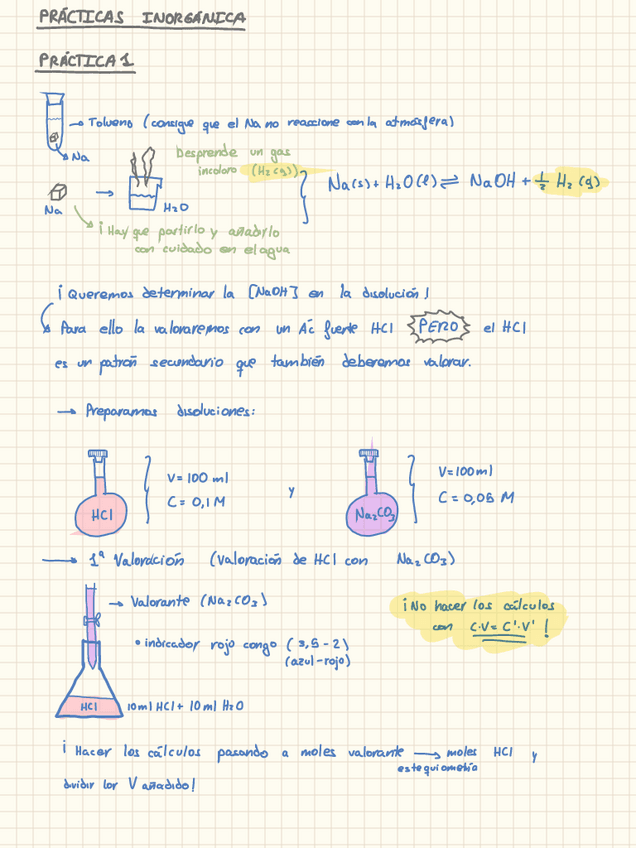 PRÁCTICAS INORGÁNICA
PRÁCTICA 1
→ Tolueno (consigue que el Na no reaccione con la atmósfera)
Na
Desprende un gas
incoloro (H₂(g))
Na(s) + H₂O(l) ⇌ NaOH + ½ H₂ (g)
Na
H₂O
¡Hay que partirlo y añadirlo
con cuidado en el agua
¡Queremos determinar la [NaOH] en la disolución!
Para ello la valoraremos con un Ác fuerte HCl PERO el HCl
es un patrón secundario que también deberemos valorar.
→ Preparamos disoluciones:
HCl
V = 100 ml
C = 0,1 M
y
Na₂CO₃
V = 100 ml
C = 0,05 M
→ 1ª Valoración (Valoración de HCl con Na₂CO₃)
→ Valorante (Na₂CO₃)
• indicador rojo congo (3,5 - 2)
(azul-rojo)
¡No hacer los cálculos
con C·V = C'·V' !
HCl
10 ml HCl + 10 ml H₂O
¡Hacer los cálculos pasando a moles valorante → moles HCl y
estequiometría
dividir lor V añadido!